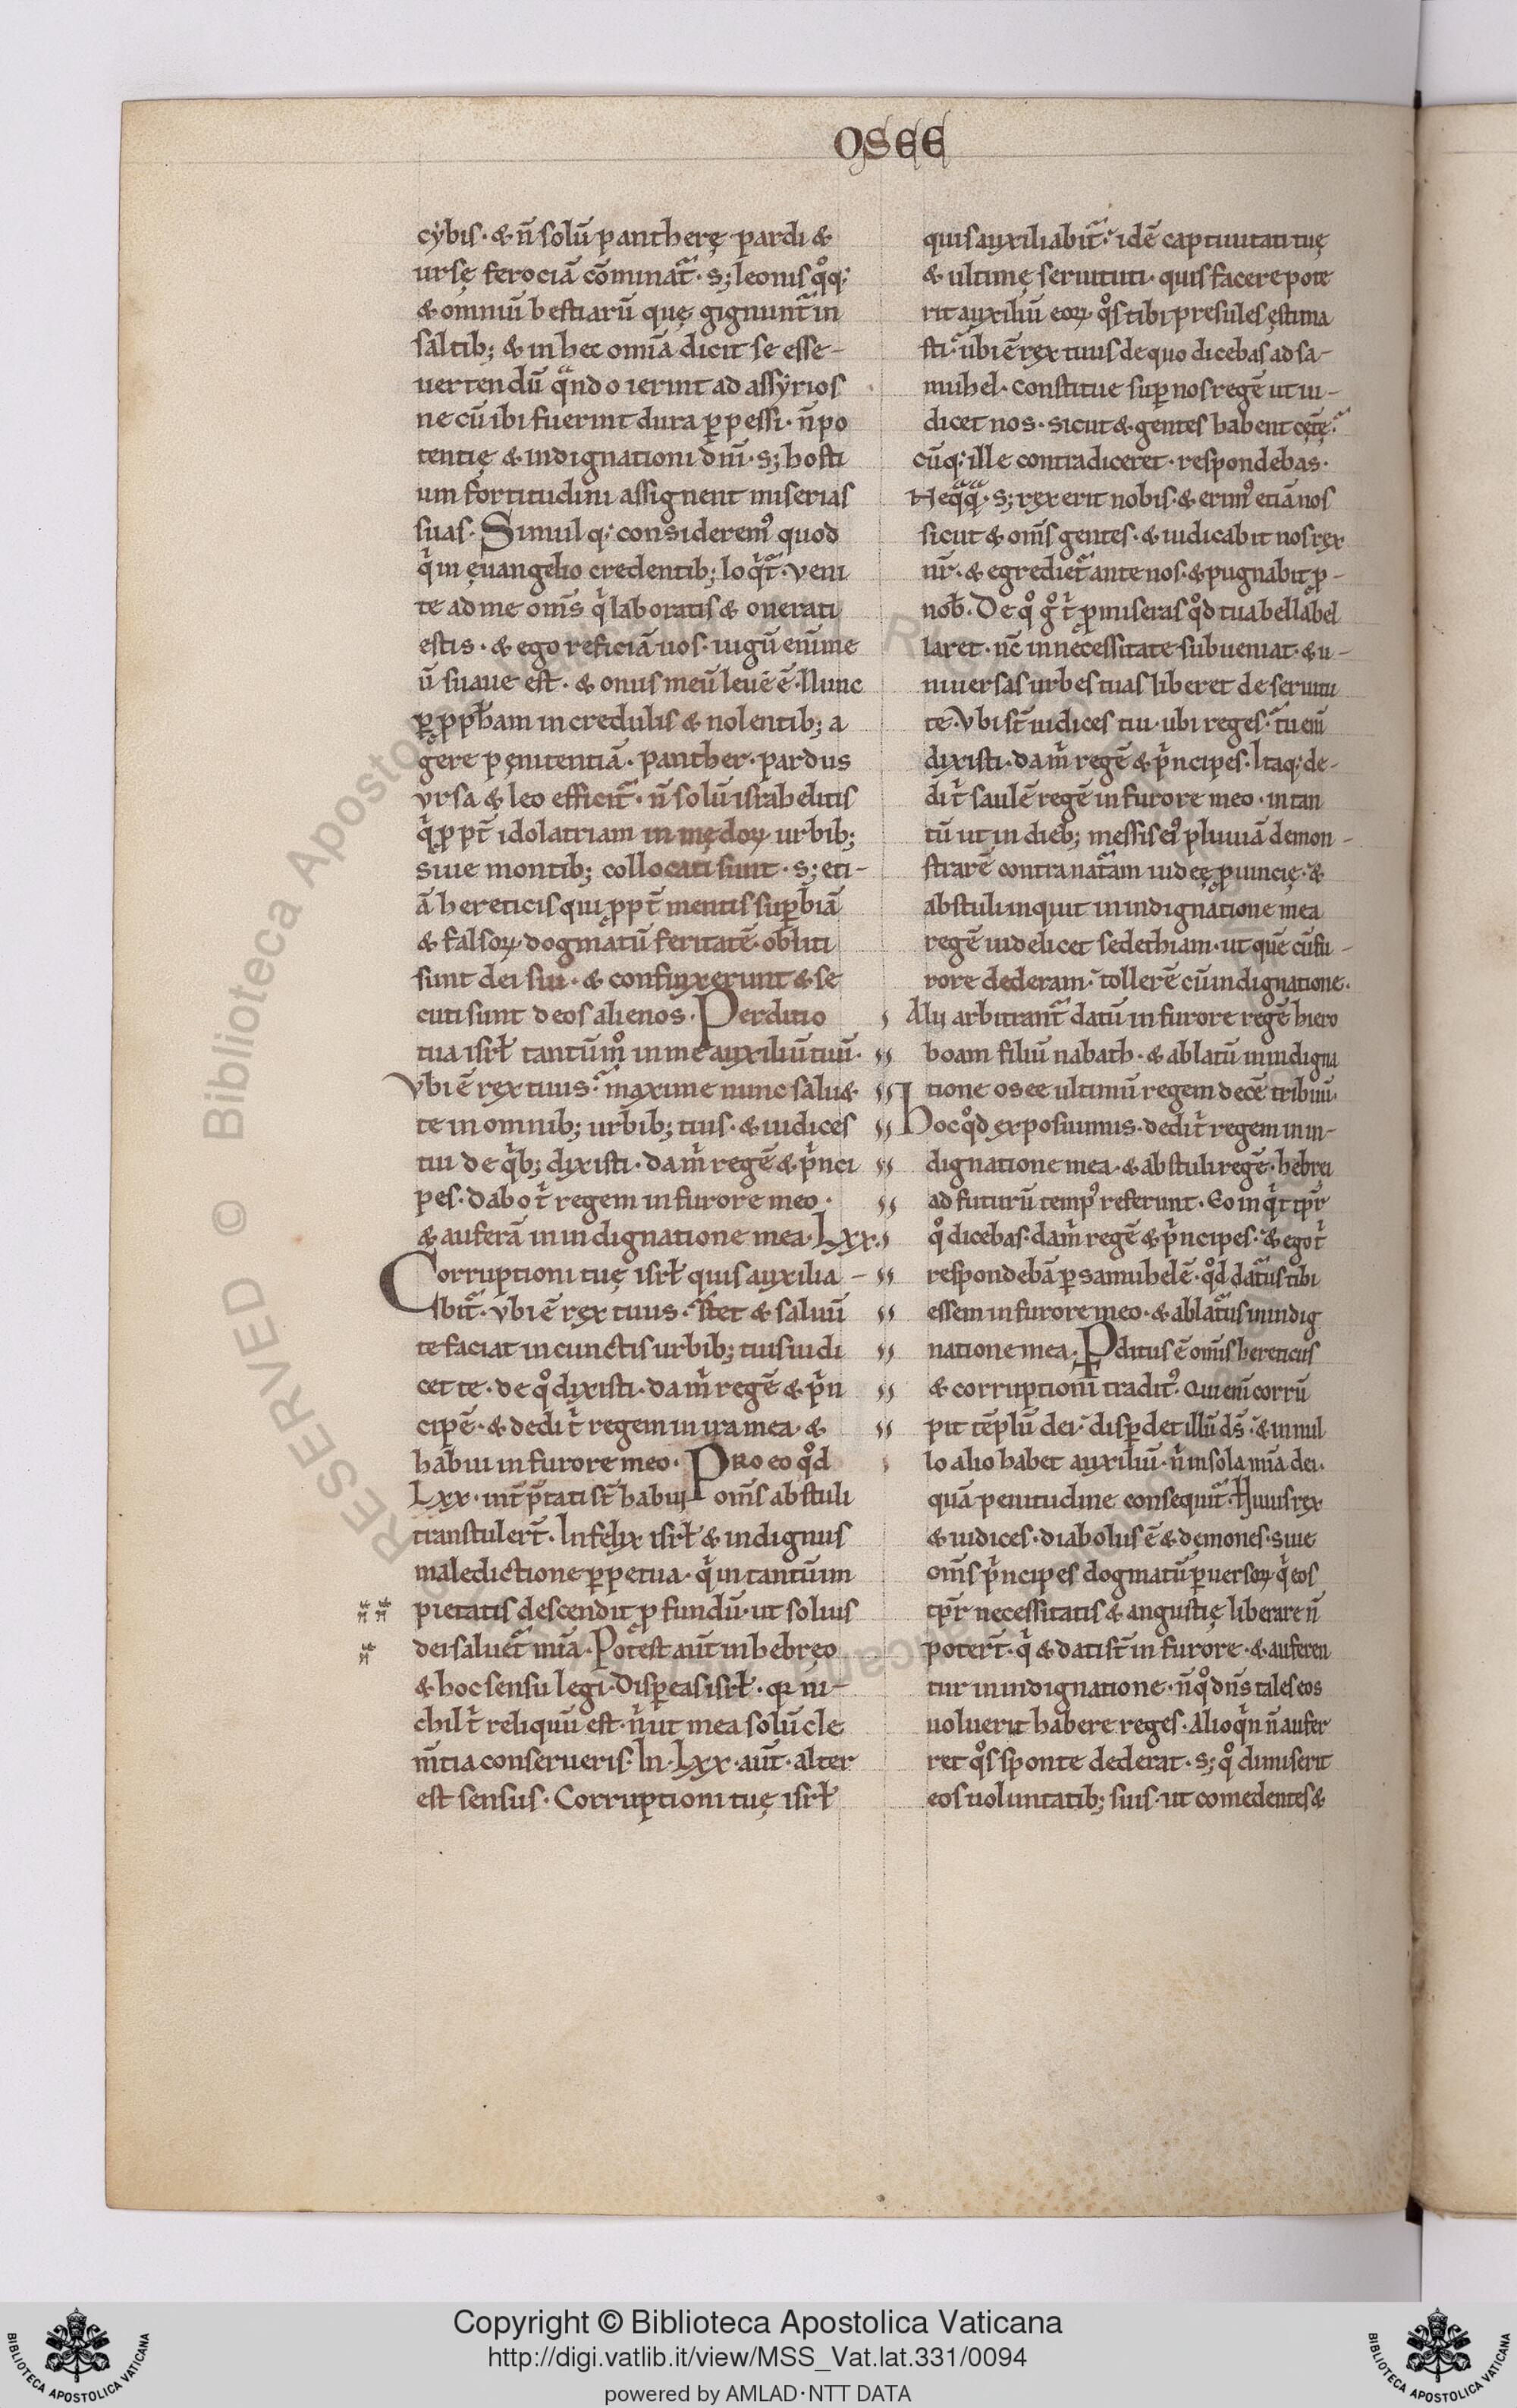 OSEE
cybis · & n̄ solū pantherę · pardi &
ursę ferociā cōminat᷑ · s; leonis qͦq;
& omniū bestiarū quę gignunt᷑ in
saltib; & in hec omīa dicit se esse-
uertendū qᵃndo ierint ad assyrios
ne cū ibi fuerint dura ꝑpessi · n̄ po
tentię & indignationi dn̄i · s; hosti
um fortitudini assignent miserias
suas · Simulq; consideremꝰ quod
qͥ in ęuangelio credentib; loqͥt᷑ · veni
te ad me om̄s qͥ laboratis & onerati
estis · & ego reficiā uos · iugū enī me
ū suaue est · & onus meū leue ē · Nunc
ꝑ ꝓph̄am incredulis & nolentib; a
gere pęnitentiā · panther · pardus
vrsa & leo efficit᷑ · n̄ solū israhelitis
qͥ ꝓpt̄ idolatriam in mędoꝝ urbib;
siue montib; collocati sunt · s; eti-
ā hereticis qui ꝓpt̄ mentis suꝑbiā
& falsoꝝ dogmatū feritatē · obliti
sunt dei sui · & confinxerunt & se
cuti sunt deos alienos · Perditio
tua isrł tantūmͦ in me auxiliū tuū ·
Vbi ē rex tuus · maxime nunc salue
te in omnib; urbib; tuis · & iudices
tui de qͥb; dixisti · da m̄ regē & pͥnci
pes · dabo tͥ regem in furore meo ·
& auferā in indignatione mea · Lxx ·
Corruptioni tuę isrł quis auxilia-
bit᷑ · vbi ē rex tuus · stet & saluū
te faciat in cunctis urbib; tuis iudi
cet te · de qͦ dixisti · da mͥ regē & pͥn
cipē · & dedi tͥ regem in ira mea · &
habui in furore meo · PRO eo qͦd
Lxx · int̄p̄tati st̄ habui om̄s abstuli
transtulert̄ · Infelix isrł & indignus
maledictione ꝑpetua · qͥ in tantū im
pietatis descendit ꝓfundū · ut solius
dei saluet᷑ mīa · Potest aut̄ in hebręo
& hoc sensu legi · Disꝑeas isrł · qꝛ ni-
chil tͥ reliquū est · nͥ ut mea solū cle
m̄tia conserueris · In · Lxx · aut̄ · alter
est sensus · Corruptioni tuę isrł
quis auxiliabit᷑ · idē captiuitati tuę
& ultimę seruituti · quis facere pote
rit auxiliū eoꝝ qͦs tibi presules ęstima
sti · ubi ē rex tuus de quo dicebas ad sa-
muhel · constitue suꝑ nos regē ut iu-
dicet nos · sicut & gentes habent cętę ·
cūq; ille contradiceret · respondebas ·
Neqᵃqᵃ · s; rex erit nobis · & erimꝰ etiā nos
sicut & om̄s gentes · & iudicabit nos rex
nr̄ · & egrediet᷑ ante nos · & pugnabit ꝓ-
nob̄ · De qͦ gͦ tͥ ꝓmiseras qͦd tua bella bel
laret · nc̄ in necessitate subueniat · & u-
niuersas urbes tuas liberet de seruitu
te · Vbi st̄ iudices tui · ubi reges · tu eni᷑
dixisti · da mͥ regē & pͥncipes · Itaq; de-
di tͥ saulē regē in furore meo · in tan
tū ut in dieb; messis eiꝰ pluuiā demon-
strarē contra nat᷑am iudeę ꝓuincię · &
abstuli inquit in indignatione mea
regē uidelicet sedethiam · ut quē cū fu-
rore dederam · tollerē cū indignatione ·
Alii arbitrant᷑ datū in furore regē hiero
boam filiū nabath · & ablatū in indigna
tione osee ultimū regem decē tribuū ·
Hoc qͦd exposuimus · dedi tͥ regem in in-
dignatione mea · & abstuli regē · hebrei
ad futurū tempꝰ referunt · Eo inqͥt tp̄r
qͦ dicebas · da mͥ regē & pͥncipes · & ego tͥ
respondebā ꝑ samuhelē · qͦd datus tibi
essem in furore meo · & ablatus in indig
natione mea · Ꝑditus ē om̄is hereticus
& corruptioni traditꝰ · Qui enī corrū
pit tēplū dei · disꝑdet illū ds̄ · & in nul
lo alio habet auxiliū · nͥ in sola mīa dei ·
quā penitudine consequit᷑ · Huius rex
& iudices · diabolus ē & dęmones · siue
om̄s pͥncipes dogmatū ꝑuersoꝝ qͥ eos
tp̄r necessitatis & angustię liberare n̄
potert̄ · qͥ & dati st̄ in furore · & auferen
tur in indignatione · n̄ qͦ dn̄s tales eos
uoluerit habere reges · Alioqͥn n̄ aufer
ret qͦs sponte dederat · s; qͦ dimiserit
eos uoluntatib; suis · ut comedentes &
RESERVED © Biblioteca Apostolica Vaticana
Copyright © Biblioteca Apostolica Vaticana
http://digi.vatlib.it/view/MSS_Vat.lat.331/0094
powered by AMLAD·NTT DATA
BIBLIOTECA APOSTOLICA VATICANA
BIBLIOTECA APOSTOLICA VATICANA